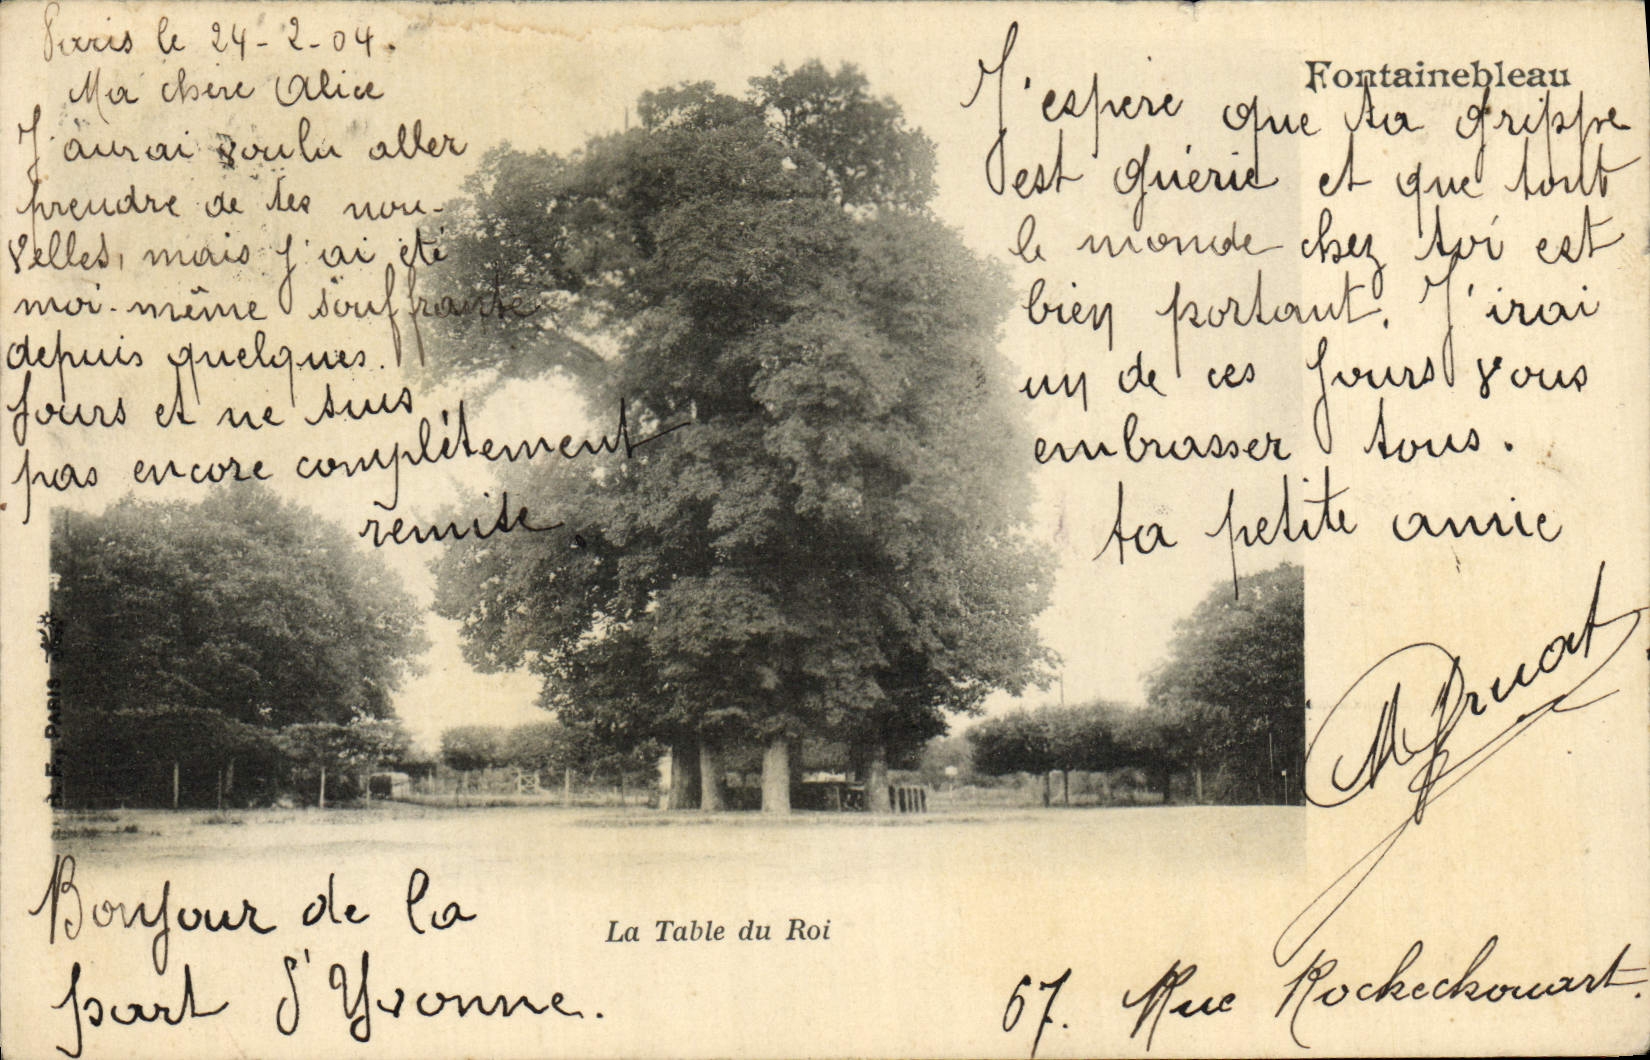 Paris le 24-2-04.
Ma chère Alice
J'aurai voulu aller
prendre de tes nou-
velles, mais j'ai été
moi-même souffrante
depuis quelques
jours et ne suis
pas encore complètement
remise.
Fontainebleau
J'espère que ta grippe
est guérie et que tout
le monde chez toi est
bien portant. J'irai
un de ces jours vous
embrasser tous.
ta petite amie
M
67. Rue Rochechouart.
Bonjour de la
part d'Yvonne.
La Table du Roi
F., PARIS